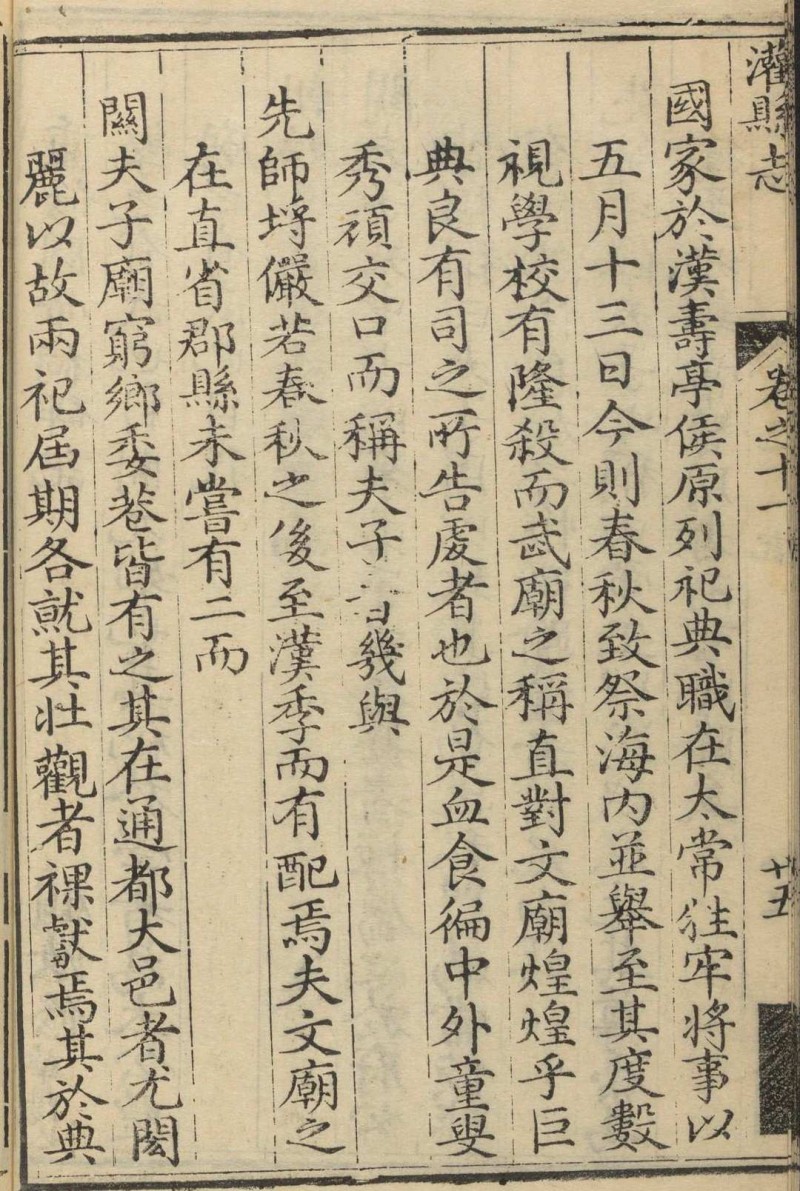 灌縣志
卷之十一
十五
國家於漢壽亭侯原列祀典職在太常牲牢將事以
五月十三日今則春秋致祭海内並舉至其度數
視學校有隆殺而武廟之稱直對文廟煌煌乎巨
典良有司之所告虔者也於是血食徧中外童叟
秀頑交口而稱夫子者幾與
先師埒儼若春秋之後至漢季而有配焉夫文廟之
在直省郡縣未嘗有二而
關夫子廟窮鄉委巷皆有之其在通都大邑者尤閎
麗以故兩祀屆期各就其壯觀者祼獻焉其於典